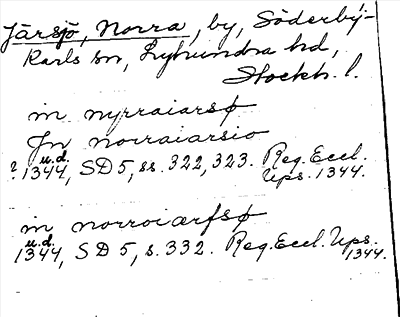 Järsjö, Norra, by, Söderby-
Karls sn, Lyhundra hd,
Stockh. l.
in nyrraiarsø
Jn norraiarsio
? u.d. 1344, SD 5, ss. 322, 323. Reg. Eccl.
Ups. 1344.
in norroiærfsø
u.d. 1344, SD 5, s. 332. Reg. Eccl. Ups.
1344.